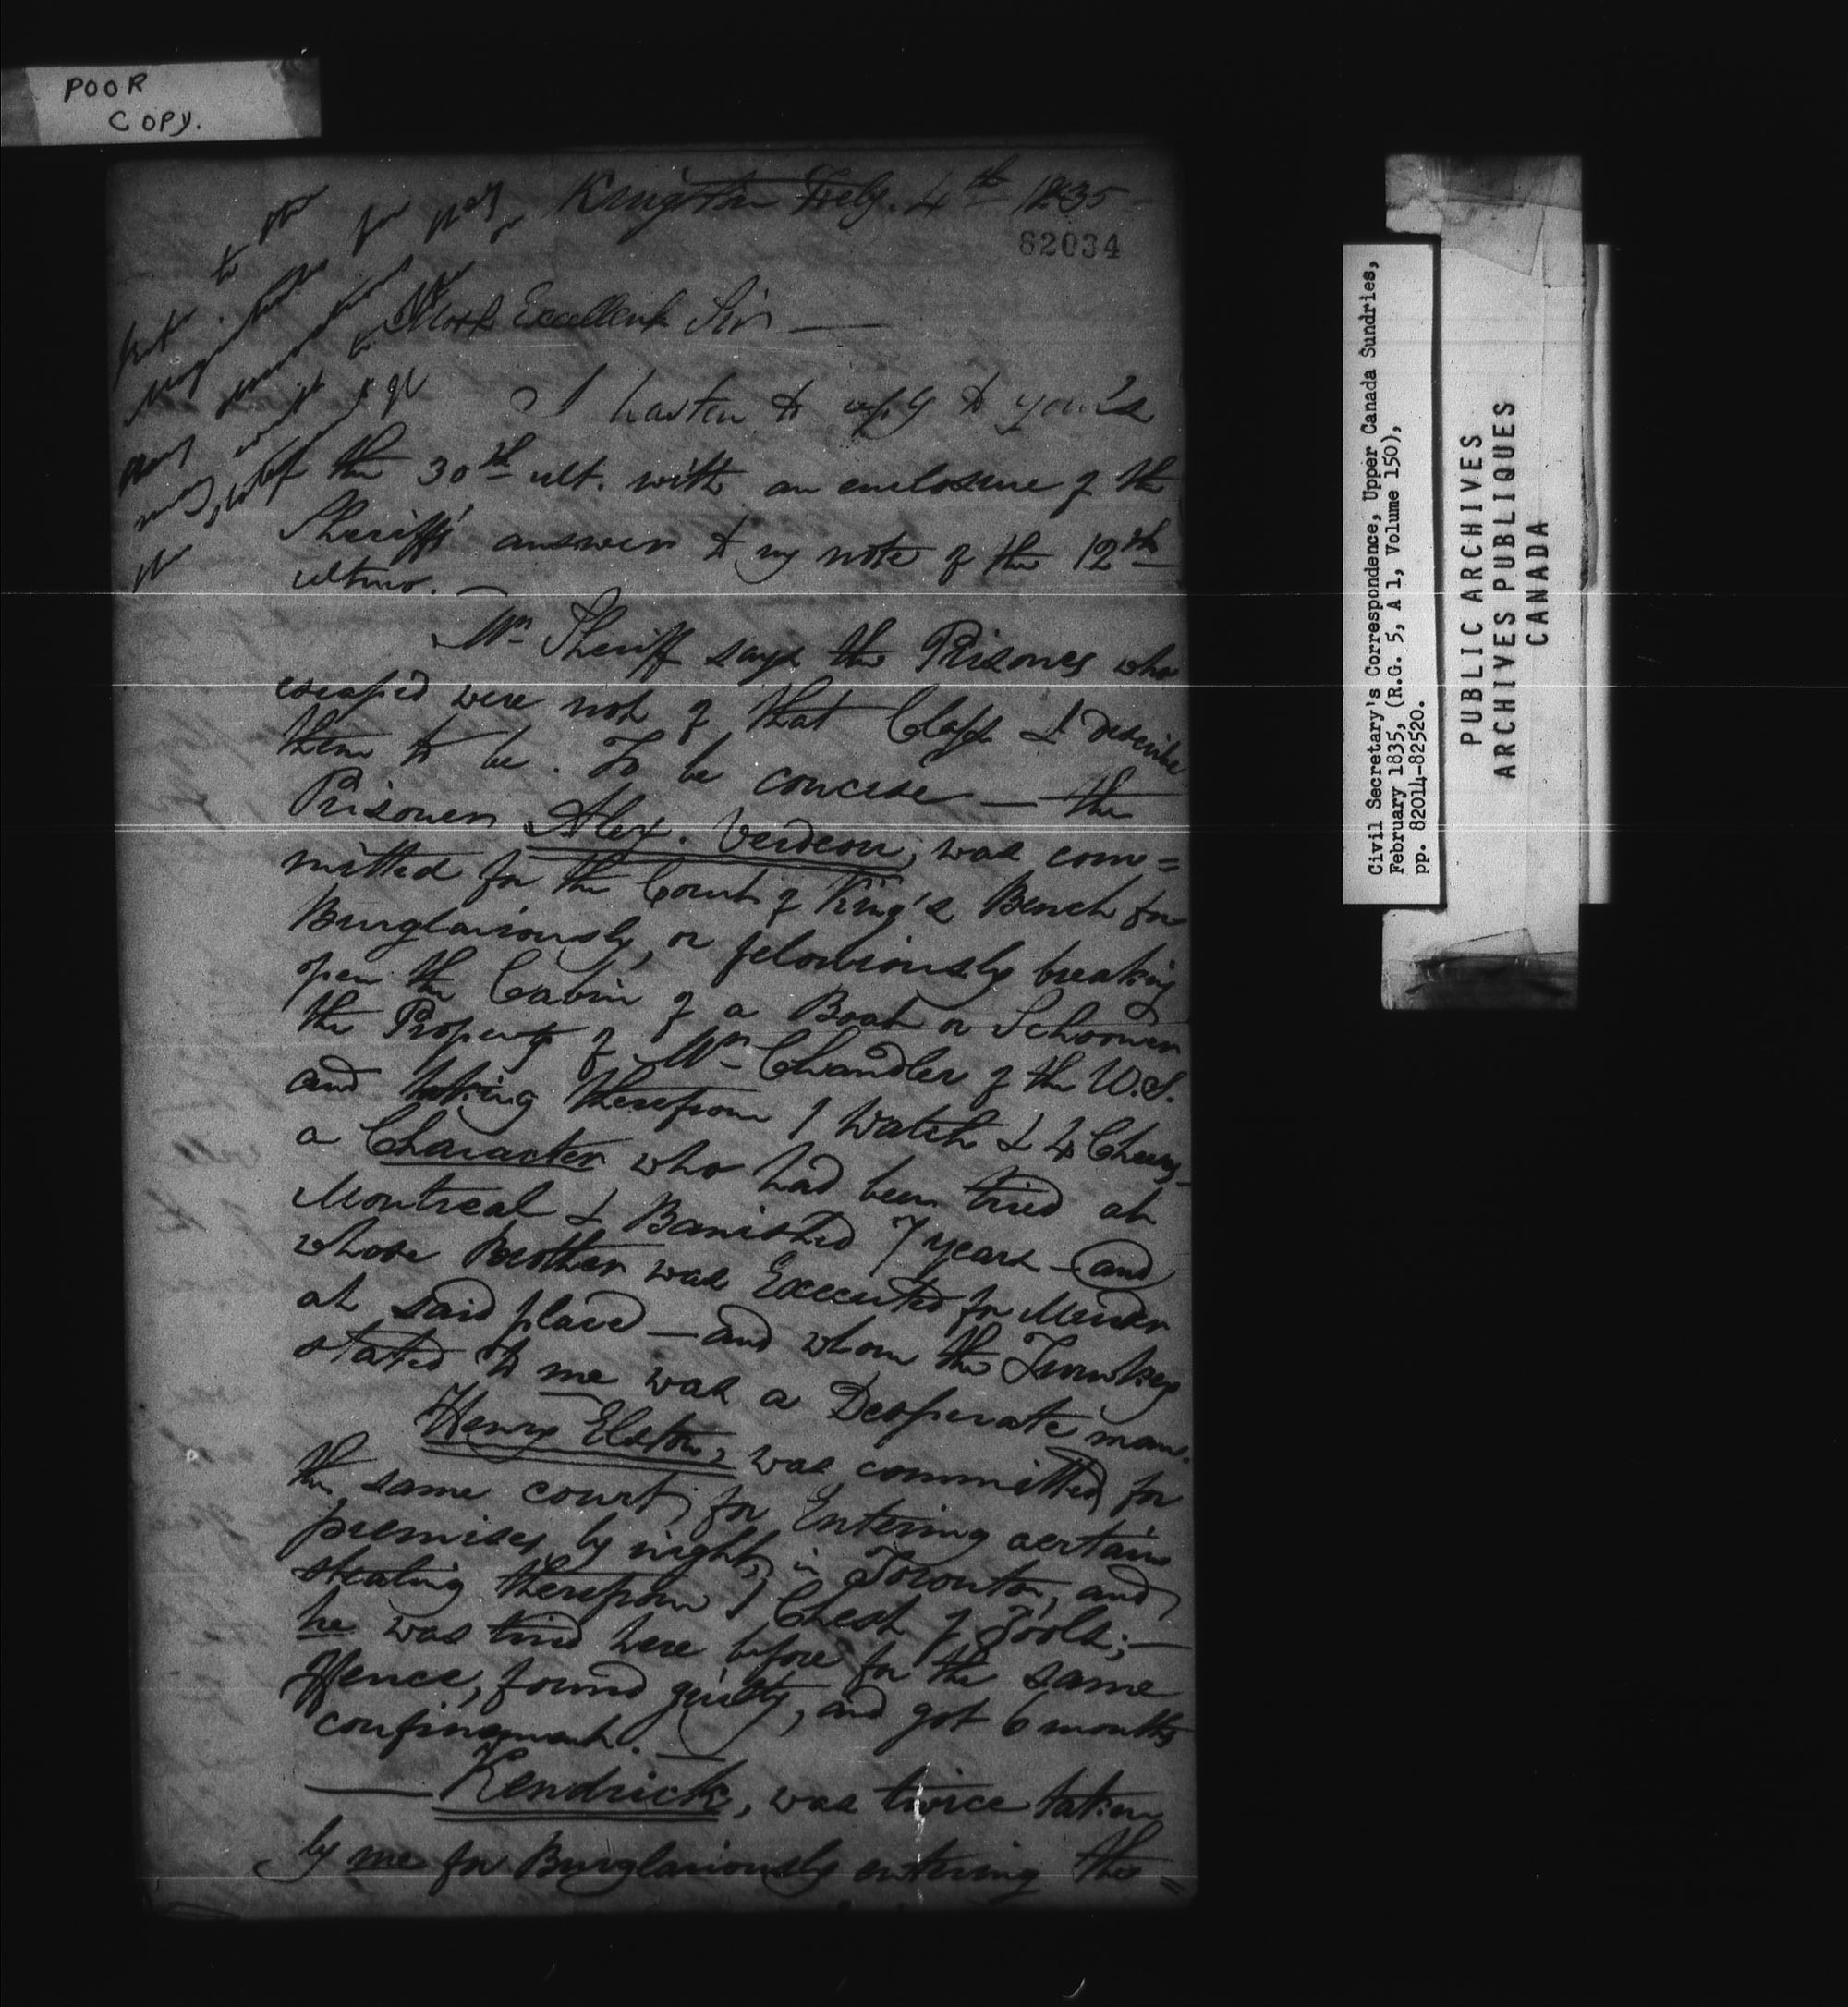 POOR
COPY.
Kingston Feby. 4th 1835
82034
Most Excellent Sir —
I hasten to reply to your's
of the 30th ult. with an enclosure of the
Sheriff's answer to my note of the 12th
ultimo.
Mr Sheriff says the Prisoners who
escap'd were not of that Class I describe
them to be. To be concise — the
Prisoner Alex. Verdeon, was com=
mitted for the Court of King's Bench for
Burglariously, or feloniously breaking
open the Cabin of a Boat or Schooner
the Property of Mr Chandler of the U.S.
and taking therefrom 1 Watch & 4
a Character who had been tried at
Montreal & Banished 7 years — and
whose Brother was Executed for Murder
at said place — and whom the Turnkey
stated to me was a Desperate man.
Henry Elston, was committed for
the same court, for Entering certain
premises by night, in Toronto, and
stealing therefrom 1 Chest of Tools; —
he was tried here before for the same
offence, found guilty, and got 6 months
confinement. —
— Kendrick, was twice taken
by me for Burglariously entering the =
Civil Secretary's Correspondence, Upper Canada Sundries,
February 1835, (R.G. 5, A 1, Volume 150),
pp. 82014-82520.
PUBLIC ARCHIVES
ARCHIVES PUBLIQUES
CANADA